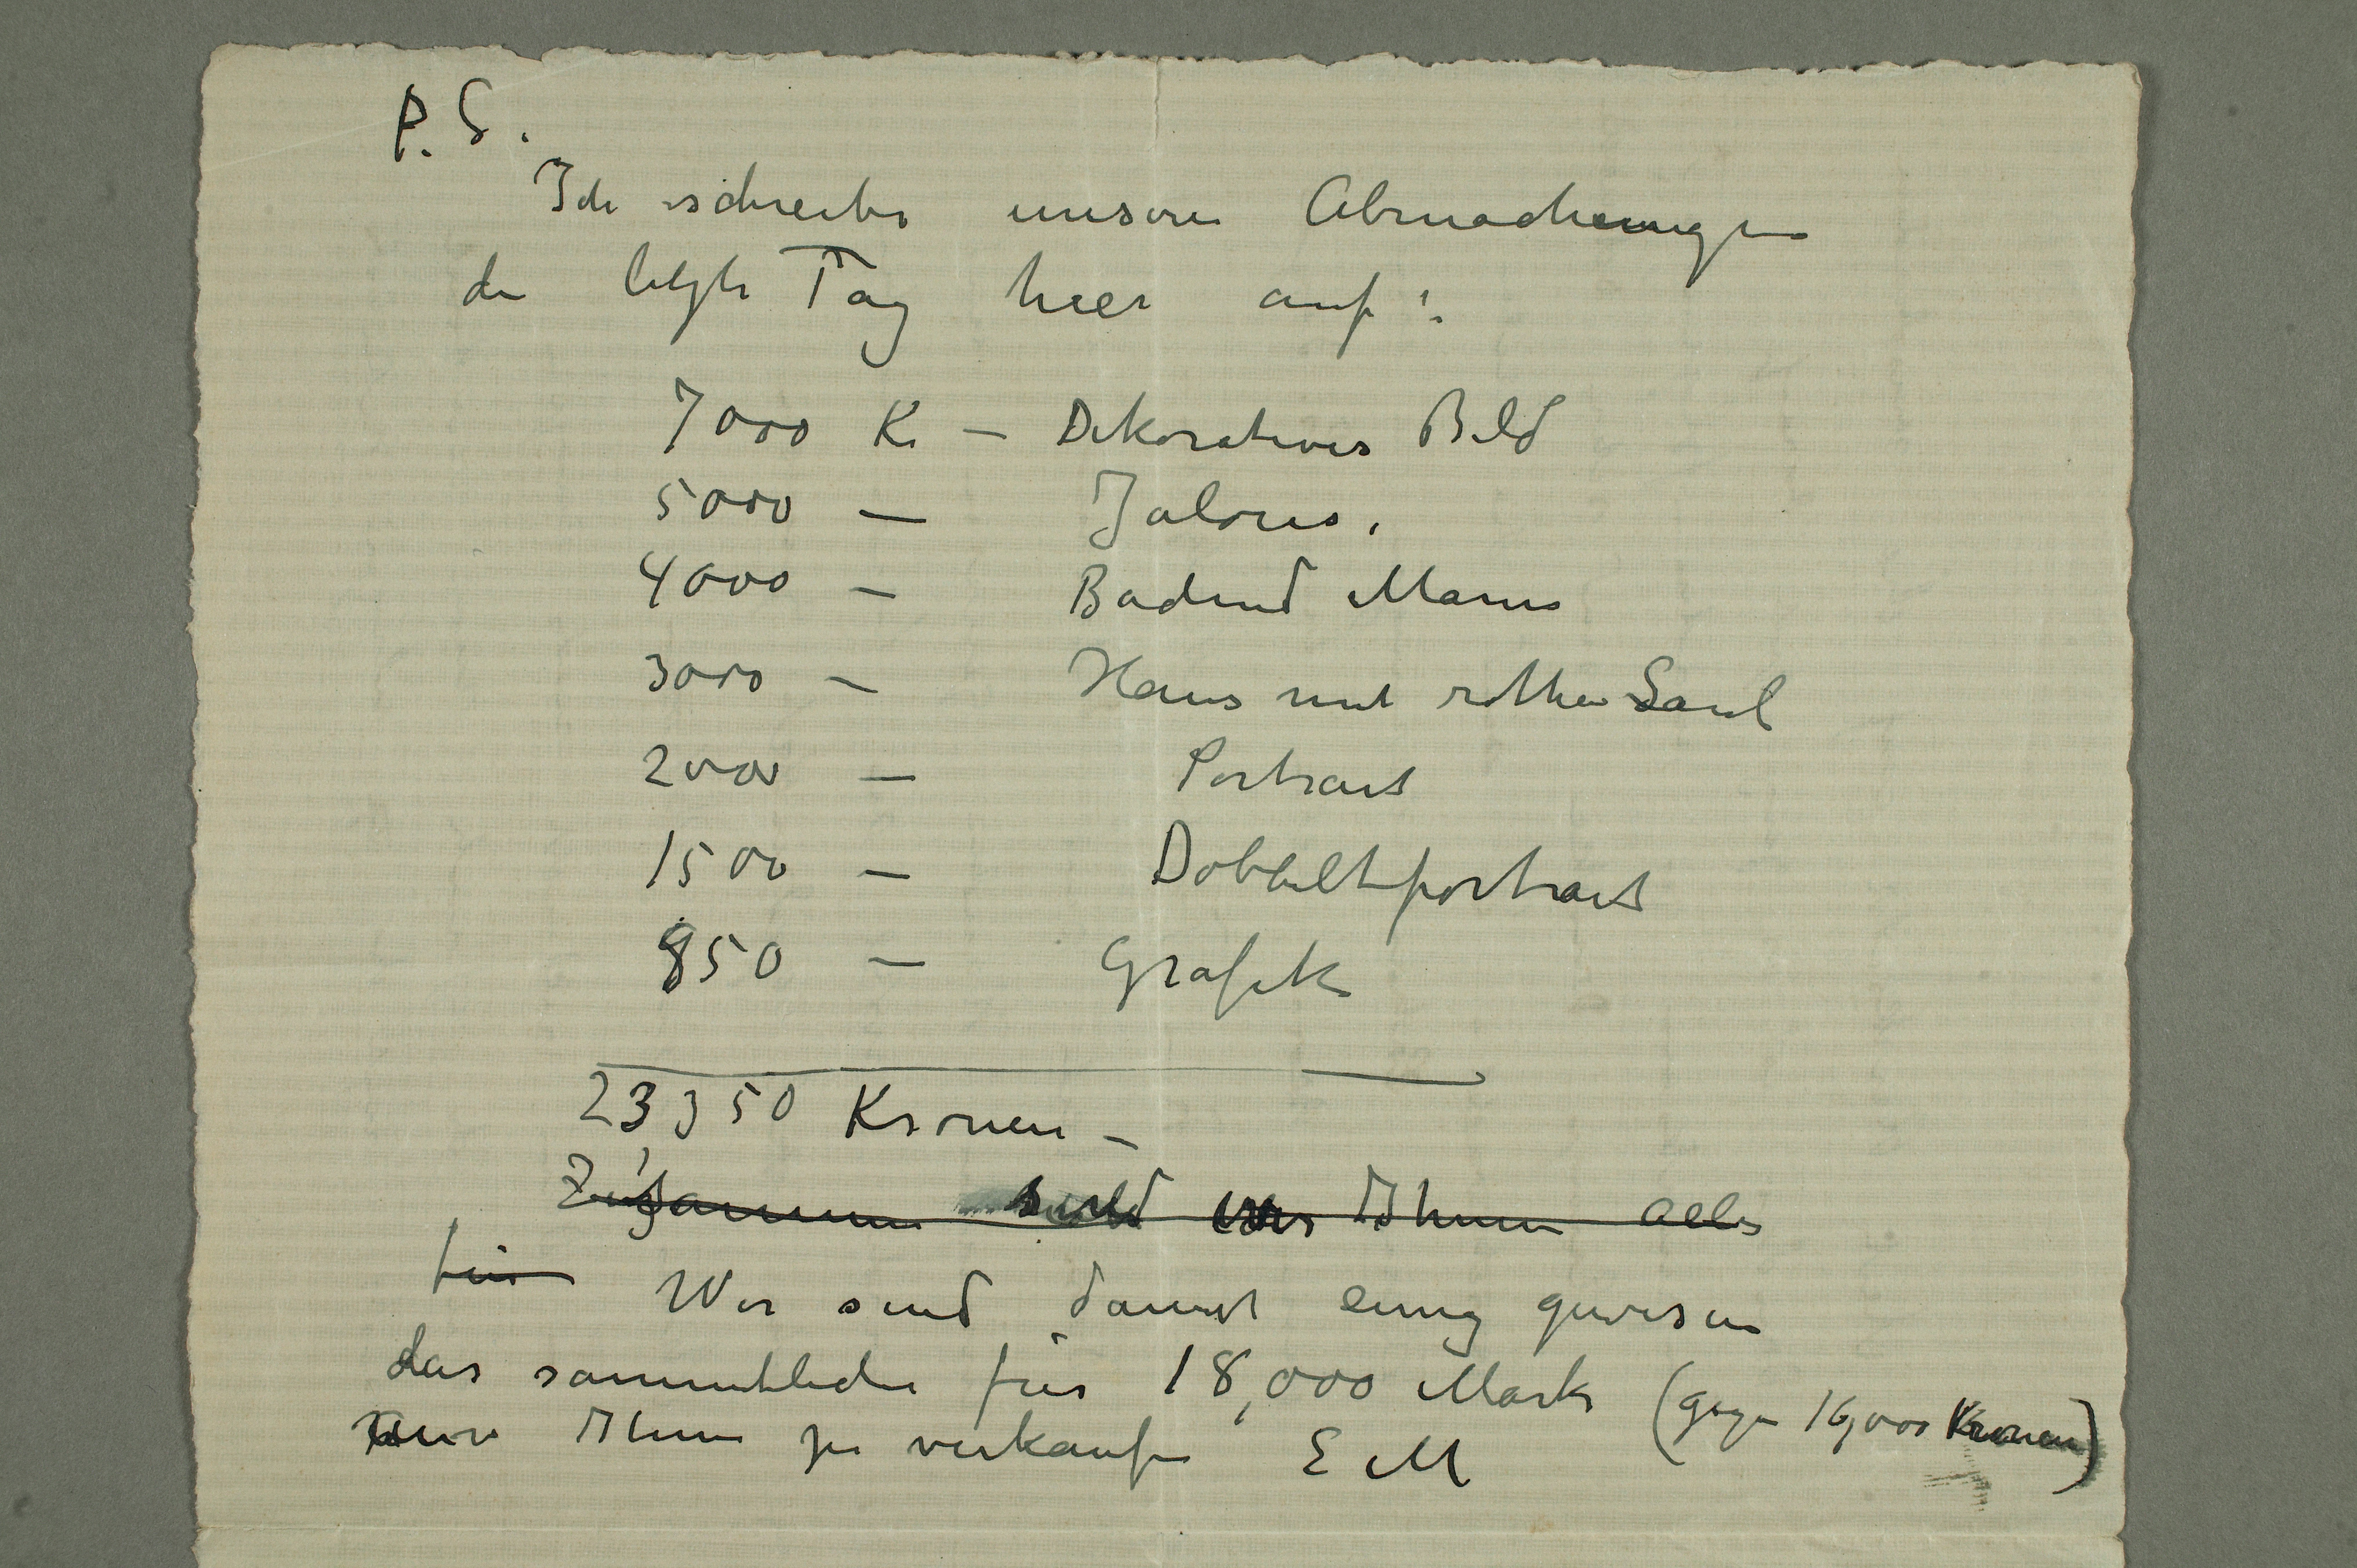 P.S.
Ich schreibe unsere Abmachungen
den letzte Tag hier auf:
7000 Kr – Dekoratives Bild
5000 – Jalousi.
4000 – Badend Mann
3000 – Haus mit rothen Saul
2000 – Portrait
1500 – Dobbeltportrait
850 – Grafik
23350 Kronen –
Zusammen sind wir Ihnen alles
für Wir sind damit einig gewesen
das sammtliche für 18,000 Mark (gegen 16,000 Kronen)
Ihnen zu verkaufen E M